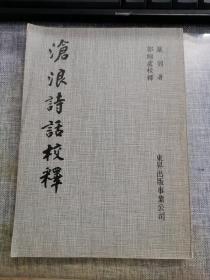 嚴羽著
郭紹虞校釋
滄浪詩話校釋
東昇出版事業公司